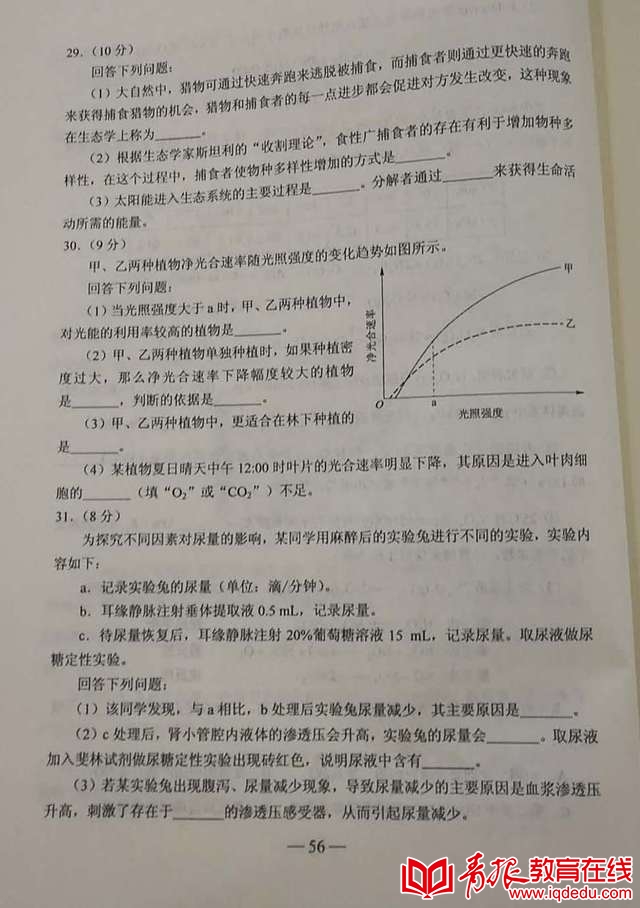 29.（10 分）
回答下列问题：
（1）大自然中，猎物可通过快速奔跑来逃脱被捕食，而捕食者则通过更快速的奔跑
来获得捕食猎物的机会，猎物和捕食者的每一点进步都会促进对方发生改变，这种现象
在生态学上称为______。
（2）根据生态学家斯坦利的“收割理论”，食性广捕食者的存在有利于增加物种多
样性，在这个过程中，捕食者使物种多样性增加的方式是______。
（3）太阳能进入生态系统的主要过程是______。分解者通过______来获得生命活
动所需的能量。
30.（9 分）
甲、乙两种植物净光合速率随光照强度的变化趋势如图所示。
回答下列问题：
（1）当光照强度大于 a 时，甲、乙两种植物中，
对光能的利用率较高的植物是______。
（2）甲、乙两种植物单独种植时，如果种植密
度过大，那么净光合速率下降幅度较大的植物
是______，判断的依据是______。
（3）甲、乙两种植物中，更适合在林下种植的
是______。
净光合速率
甲
乙
O
a
光照强度
（4）某植物夏日晴天中午 12:00 时叶片的光合速率明显下降，其原因是进入叶肉细
胞的______（填“O₂”或“CO₂”）不足。
31.（8 分）
为探究不同因素对尿量的影响，某同学用麻醉后的实验兔进行不同的实验，实验内
容如下：
a．记录实验兔的尿量（单位：滴/分钟）。
b．耳缘静脉注射垂体提取液 0.5 mL，记录尿量。
c．待尿量恢复后，耳缘静脉注射 20%葡萄糖溶液 15 mL，记录尿量。取尿液做尿
糖定性实验。
回答下列问题：
（1）该同学发现，与 a 相比，b 处理后实验兔尿量减少，其主要原因是______。
（2）c 处理后，肾小管腔内液体的渗透压会升高，实验兔的尿量会______。取尿液
加入斐林试剂做尿糖定性实验出现砖红色，说明尿液中含有______。
（3）若某实验兔出现腹泻、尿量减少现象，导致尿量减少的主要原因是血浆渗透压
升高，刺激了存在于______的渗透压感受器，从而引起尿量减少。
— 56 —
青报教育在线
www.iqdedu.com